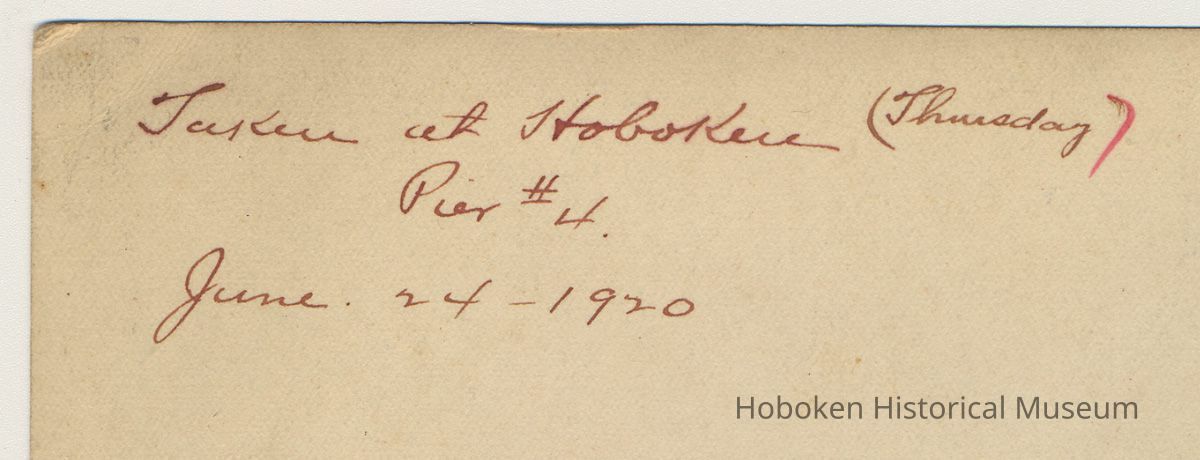 Taken at Hoboken (Thursday)
Pier # 4.
June. 24 - 1920
Hoboken Historical Museum